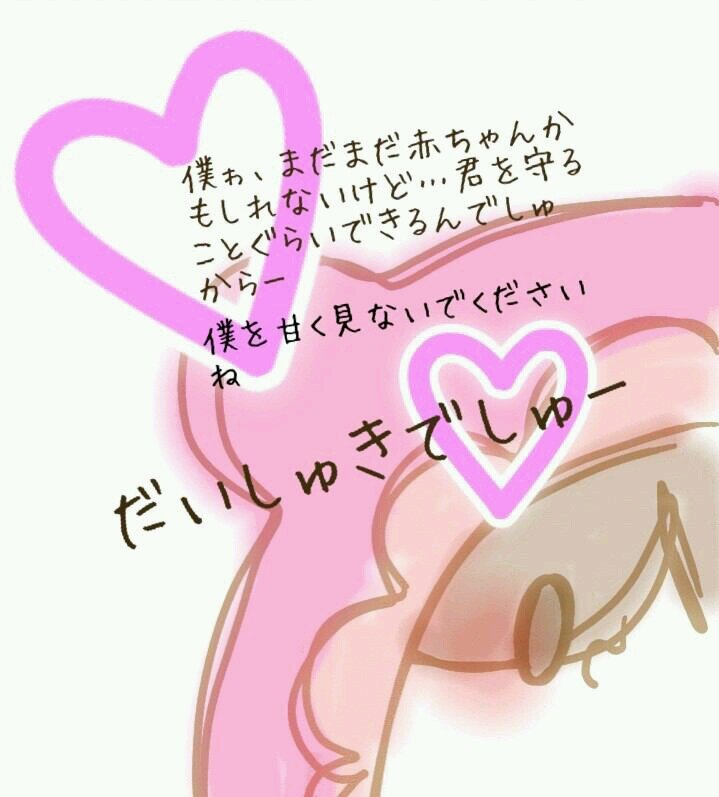 僕ぉ、まだまだ赤ちゃんか
もしれないけど…君を守る
ことぐらいできるんでしゅ
からー
僕を甘く見ないでください
ね
だいしゅきでしゅー